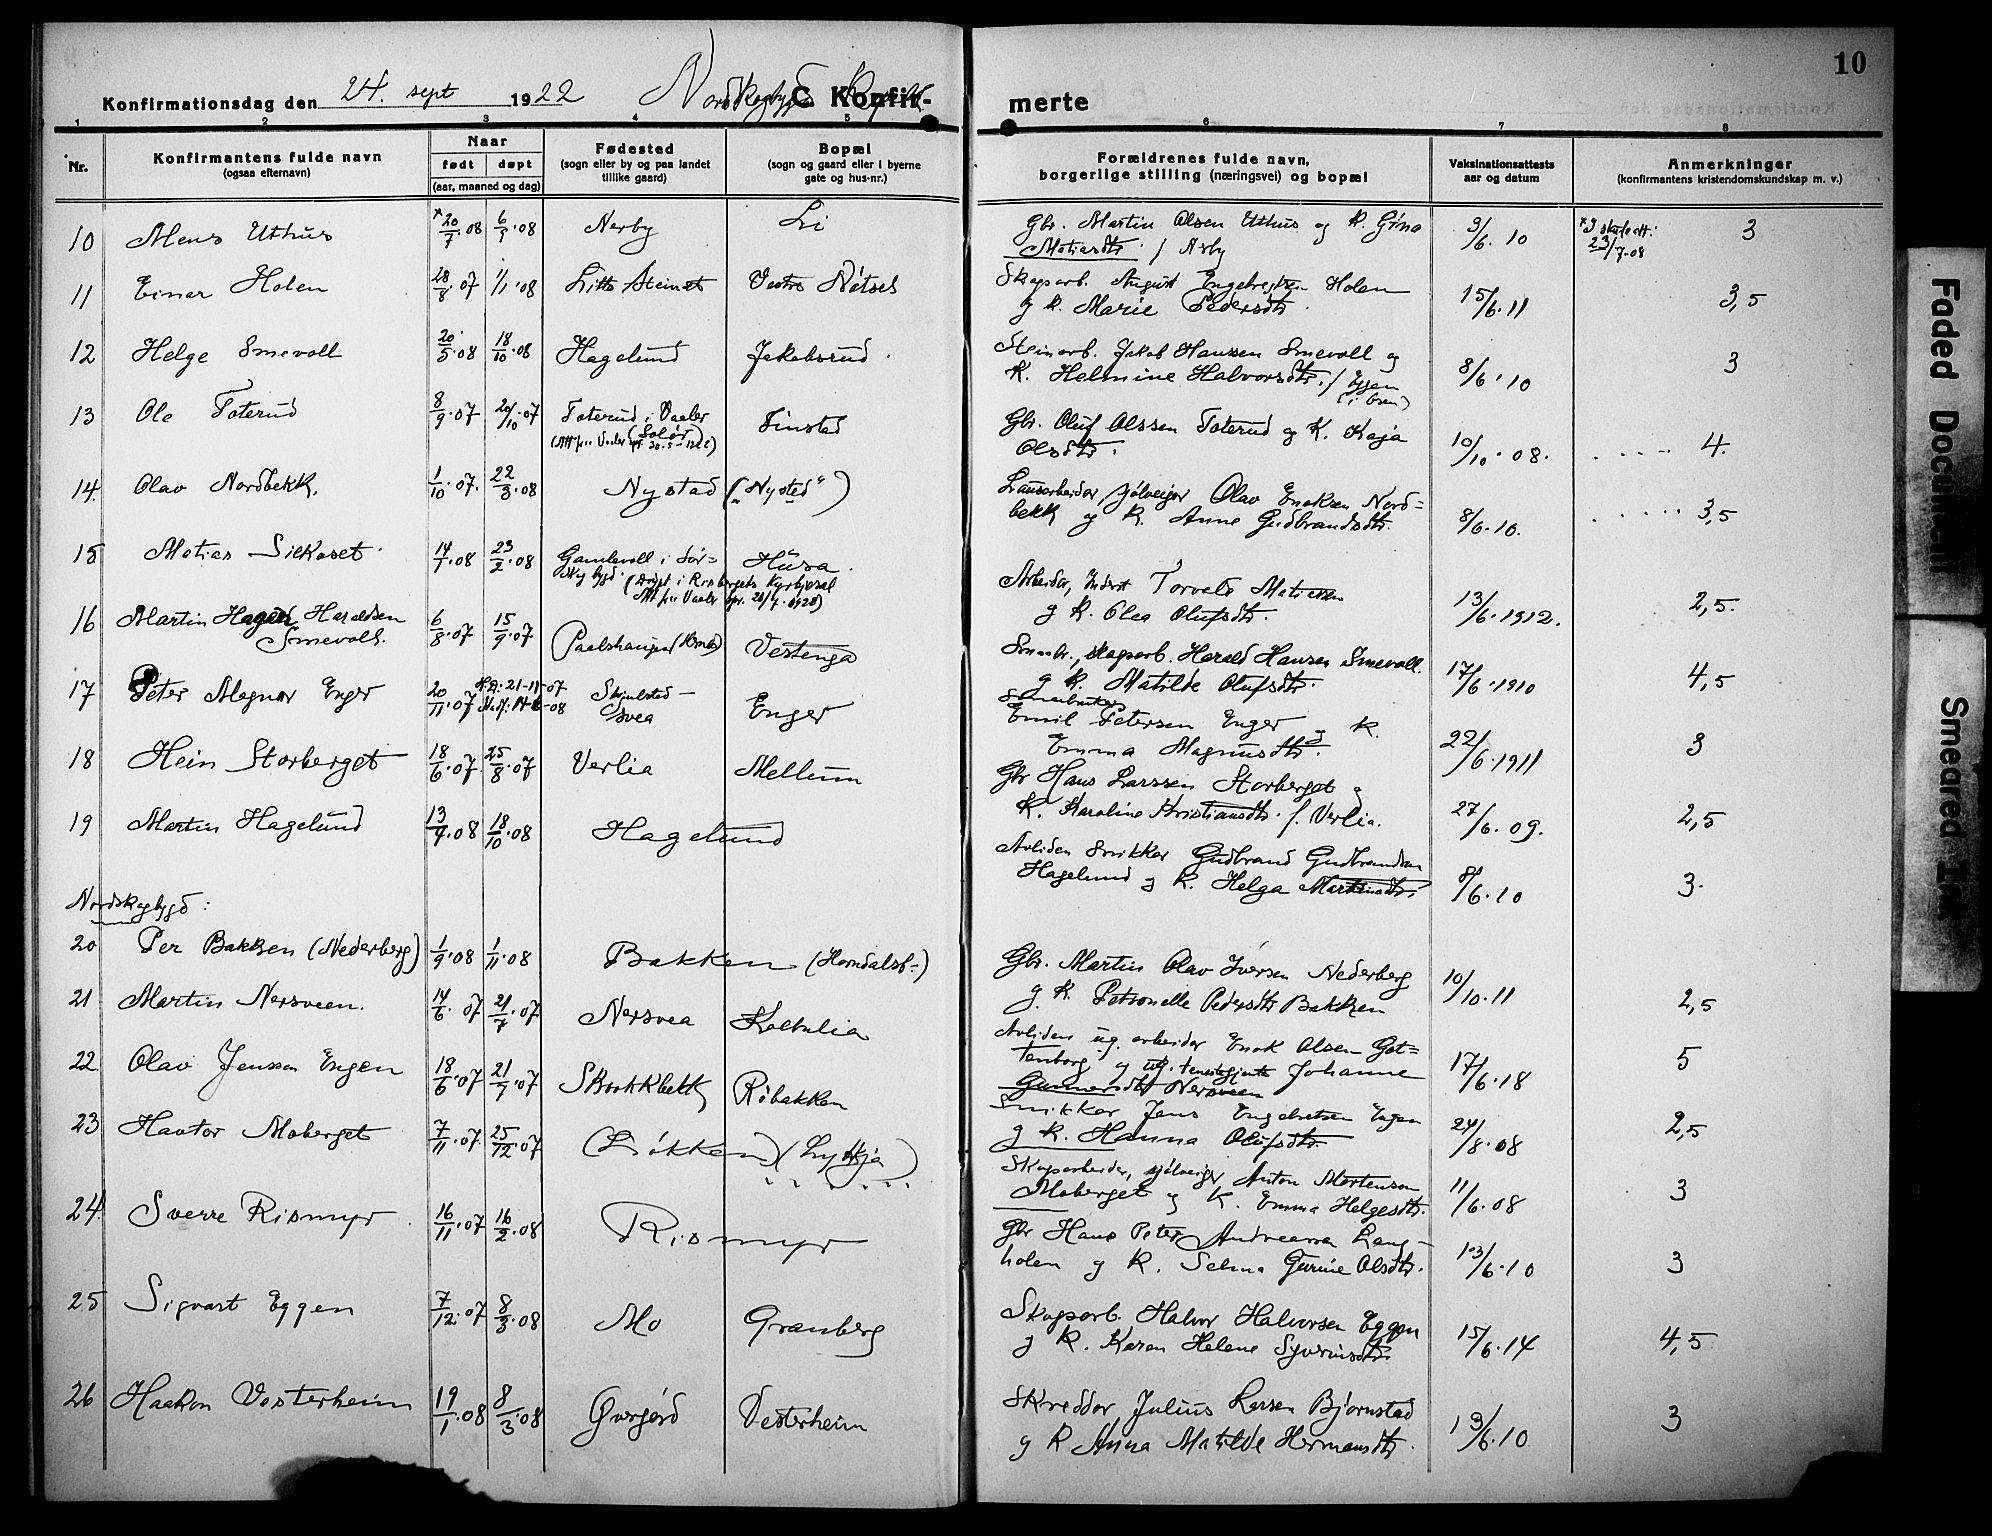 10
Konfirmationsdag den 24. sept 1922 Nordskogbygd C. Konfir-
merte
1 2 3 4 5 6 7 8
Nr.
Konfirmantens fulde navn
(ogsaa efternavn)
Naar
født døpt
(aar, maaned og dag)
Fødested
(sogn eller by og paa landet
tillike gaard)
Bopæl
(sogn og gaard eller i byerne
gate og hus-nr.)
Forældrenes fulde navn,
borgerlige stilling (næringsvei) og bopæl
Vaksinationsattests
aar og datum
Anmerkninger
(konfirmantens kristendomskundskap m. v.)
10 Mens Uthus 20/7·08 Nerby Li
Gbr. Martin Olsen Uthus og K. Gina
3/6·10 23/7·08 3
11 Einar Holen 28/8·07 1/1·08 Vestre Nøtsel
Skogsarb. August Holen
og K. Marie Pedersdtr. 15/6·11 3,5
12 Helge Smevoll 20/5·08 18/10·08 Hagelund Jakobsrud
Steinarb. Jakob Hanssen Smevoll og
K. Helmine Halvorsdtr. / Eggen 8/6·10 3
(i Osen)
13 Ole Toterud 8/9·07 20/10·07 Toterud i Vaaler Finstad
(Solør)
Gbr. Oluf Olssen Toterud og K. Kaja
Olsdtr. 10/10·08. 4.
14. Olav Nordbekk. 1/10·07. 22/3·08 Nystad ("Nysted")
sjølveigar Olav Enoksen Nord=
bekk og K. Anne Gudbrandsdtr. 8/6·10. 3,5
15 Matias Silkoset 23/2·08 Gamlevoll i Sør= Husa.
skogbygd. (Døypt i Risbergets Kyrkjesal
Arbeidar, Torvald Matiassen
og K. Olea Olufsdtr. 13/6·1912. 2,5.
16 Martin Hagen Haraldsen
Smevoll. 6/8·07 15/9·07 Vestenga
skogsarb. Harald Hansen Smevoll.
og K. Matilde Olufsdtr. 17/6·1910 4,5
17 Peter Magnar Enger 20/11·07 H.D: 21-11-07
Skjulstad-
svea Enger
Emil Petersen Enger og K.
Emma Magnusdtr. 22/6·1911 3
18 Hein Storberget 18/6·07 25/8·07 Verlia Mellum
Gbr Hans Larssen Storberget og
K. Karoline Kristiansdtr. f. Verlia. 27/6·09. 2,5
19 Martin Hagelund 18/10·08 Hagelund
Avliden Snikkar Gudbrand Gudbrandsen
Hagelund og K. Helga Martinsdtr. 8/6·10 3.
Nordskogbygd:
20 Per Bakken (Nederberg) 1/9·08 1/11·08 Bakken (Horndalsb-)
Gbr. Martin Olav Iversen Nederberg
og K. Petronelle Pedersdtr Bakken 10/10·11 2,5
21 Martin Nersveen. 14/6·07 21/7·07 Nersvea
Avliden ug. arbeidar Enok Olsen Got=
tenborg og ug. tenestgjente Johanne
Gunnarsdtr Nersveen 17/6·18 5
22 Olav Jenssen Engen 18/6·07 21/7·07 Skrokkbekk Røbakken
Snikkar Jens Engebretsen Engen
og K. Hanna Olufsdtr. 24/8·08 2,5
23 Havtor Moberget 7/11·07 25/12·07 (Løkken) (Lykkja)
Skogsarbeidar, sjølveigar Anton Mortensen
Moberget og K. Emma Helgesdtr. 11/6·08 3
24. Sverre Rismyr 16/11·07 16/2·08 Rismyr
Gbr Hans Peter Andreassen Lang-
holen og K. Selma Gurine Olsdtr. 13/6·10 3
25 Sigvart Eggen 7/12·07 8/3·08 Mo Granberg
Skogsarb. Halvor Halvorsen Eggen
og K. Karen Helene Syverinsdtr. 15/6·14 4,5
26 Haakon Vesterheim 19/1·08 8/3·08 Øvergård Vesterheim
Skreddar Julius Larsen Bjørnstad
og K Anna Matilde Hermansdtr. 13/6·10 3
Faded Document
Smeared Ink